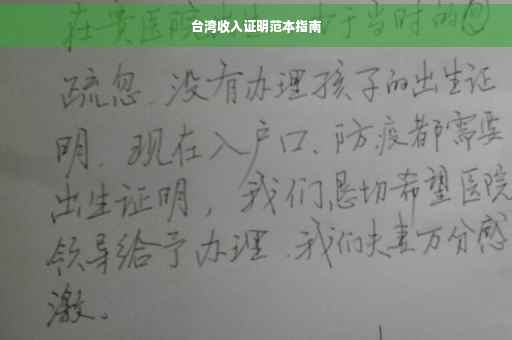 台湾收入证明范本指南
在贵医院 于当时的
疏忽、没有办理孩子的出生证
明、现在入户口、防疫都需要
出生证明，我们恳切希望医院
领导给予办理、我们夫妻万分感
激。